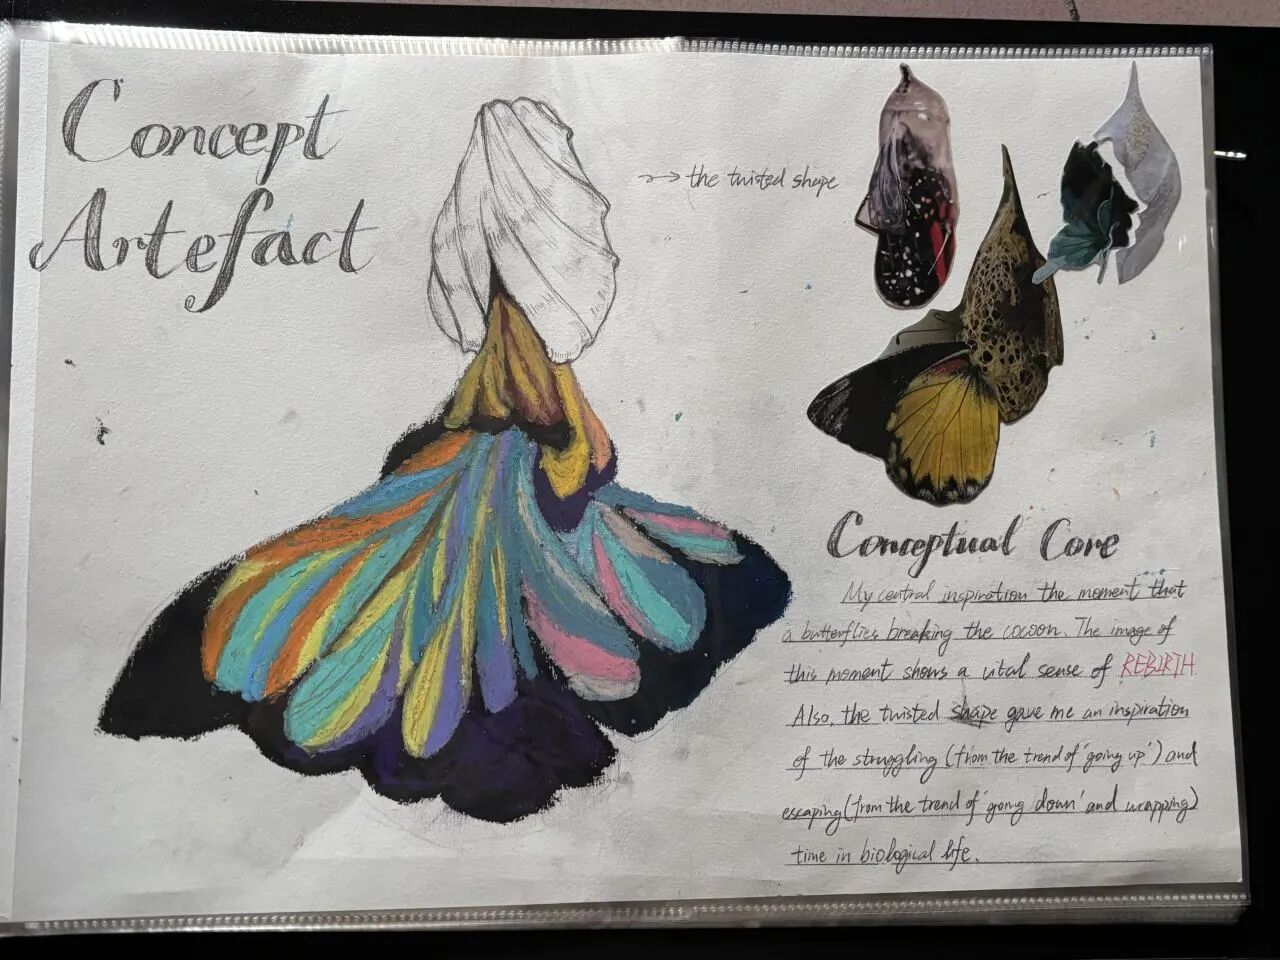 Concept
Artefact
the twisted shape
Conceptual Core
My central inspiration the moment that
a butterflies breaking the cocoon. The image of
this moment shows a vital sense of REBIRTH
Also, the twisted shape gave me an inspiration
of the struggling (from the trend of 'going up') and
escaping (from the trend of 'going down' and wrapping)
time in biological life.